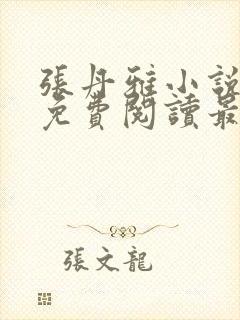 張丹雅小說
免費閱讀最
張文龍